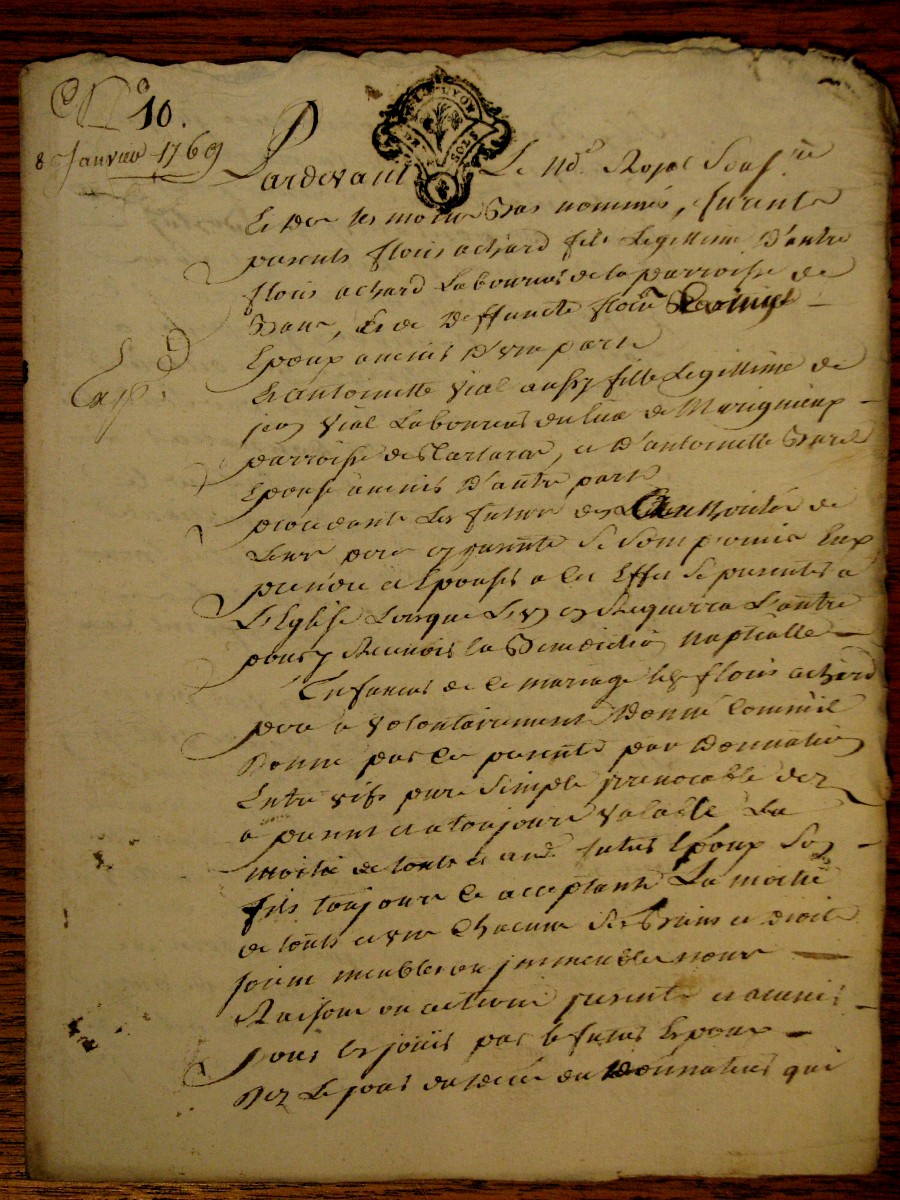 N° 10.
8 Janvier 1769
GEN. DE LYON
2 SOLS
Pardevant Le No.re Royal Souss.né
Et des temoins Bas nommés, furent
presents fleuri achard fils Legittime d'autre
fleuri achard Laboureur de la parroisse de
et de deffuncte
Epoux avenir d'une part
Exp.é
Et antoinette vial aussy fille Legittime de
jean vial Laboureur du lieu de Marignieux
parroisse de, et d'antoinette Burel
Epouse avenir d'autre part
procedants Les futurs de L'authorité de
Leurs peres ey presents se sont promis Eux
prendre et Epouser a Ces Effet se presenter a
L'Eglise Lorsque L'un en Requerra L'autre
pour y Recevoir la Benediction nuptialle
En faveur de Ce mariage led. fleuri achard
pere a volontairement Donné Comme il
Donne par Ces presentes par Donnation
Entre vifs pure simple jrrevocable dez
a present et a toujours valable La
moitié de touts aud. futur Epoux Son
fils toujours Ce acceptant La moitié
de touts et un Chacuns ses Biens et droits
soient meubles ou jmmeubles noms
Raisons ou actions presents et avenir
pour En jouir par le futur Epoux
Dez Le jour du decés du Donnateur qui